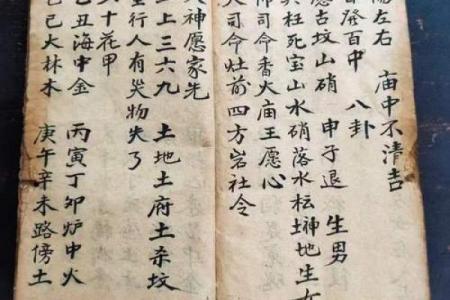 左右 庙中不清吉
百中 八卦
愿古坟山硝 申子退 生男
枉死宝山水硝落水枟神地生女
司命香火庙王愿心
司命灶前四方岩社令
神愿家先
上三六九 土地土府土杀坟
行人有災物失了
十花甲
丑海中金 丙寅丁卯炉中火
巳大林木 庚午辛未路傍土